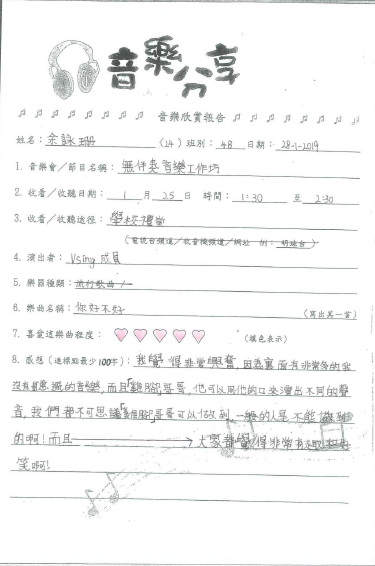 音樂分享
音樂欣賞報告
姓名：余詠珊 (24) 班別：4B 日期：28-1-2019
1. 音樂會／節目名稱：無伴奏音樂工作坊
2. 收看／收聽日期：1 月 25 日 時間：1:30 至 2:30
3. 收看／收聽途徑：學校禮堂
(電視台頻道／收音機頻道／網站 例：明珠台)
4. 演出者：Vsing 成員
5. 樂曲種類：流行歌曲
6. 樂曲名稱：你好不好 (寫出其一首)
7. 喜愛這樂曲程度： (填色表示)
8. 感想（連標點最少100字）：我覺得非常興奮，因為裏面有非常多的我
沒有聽過的音樂，而且雞腳哥哥，他可以用他的口來演出不同的聲
音，我們都不可思議雞腳哥哥可以做到一般的人是不能做到
的啊！而且 大家都覺得非常有趣
笑啊！